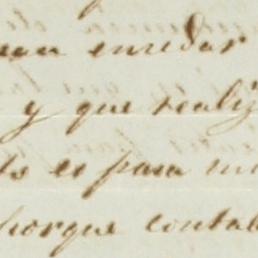 enredar
y que realiz
es para mi
porque contab